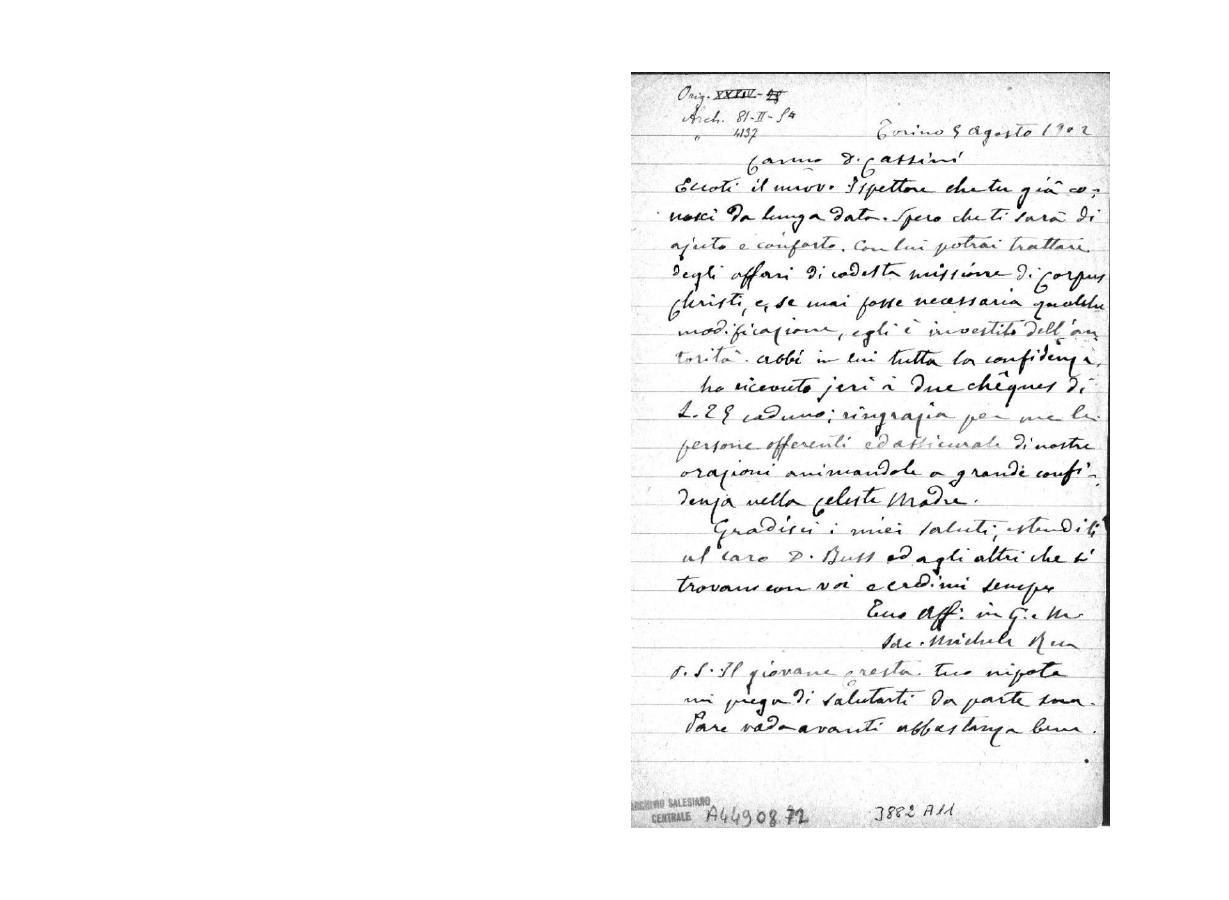 Orig. XXXIV-
Arch. 81-II-54
" 4137
Torino 5 Agosto 1902
Carmo D. Cassini
Eccoti il nuovo Ispettore che tu già co-
nosci da lunga data. Spero che ti sarà di
ajuto e conforto. Con lui potrai trattare
degli affari di codesta missione di Corpus
Christi, e, se mai fosse necessaria qualche
modificazione, egli è investito dell'au
torità. abbi in lui tutta la confidenza.
ho ricevuto jeri i due chêques di
L. 25 caduno; ringrazia per me le
persone offerenti ed assicurale di nostre
orazioni animandole a grande confi-
denza nella Celeste Madre.
Gradisci i miei saluti, estendili
al caro D. Buss ed agli altri che si
trovano con voi e credimi sempre
Tuo Aff. in G. e M.
Sac. Michele Rua
P.S. Il giovane Cresta tuo nipote
mi prega di salutarti da parte sua.
Pare vada avanti abbastanza bene.
ARCHIVIO SALESIANO
CENTRALE
A4490872
3882 A11